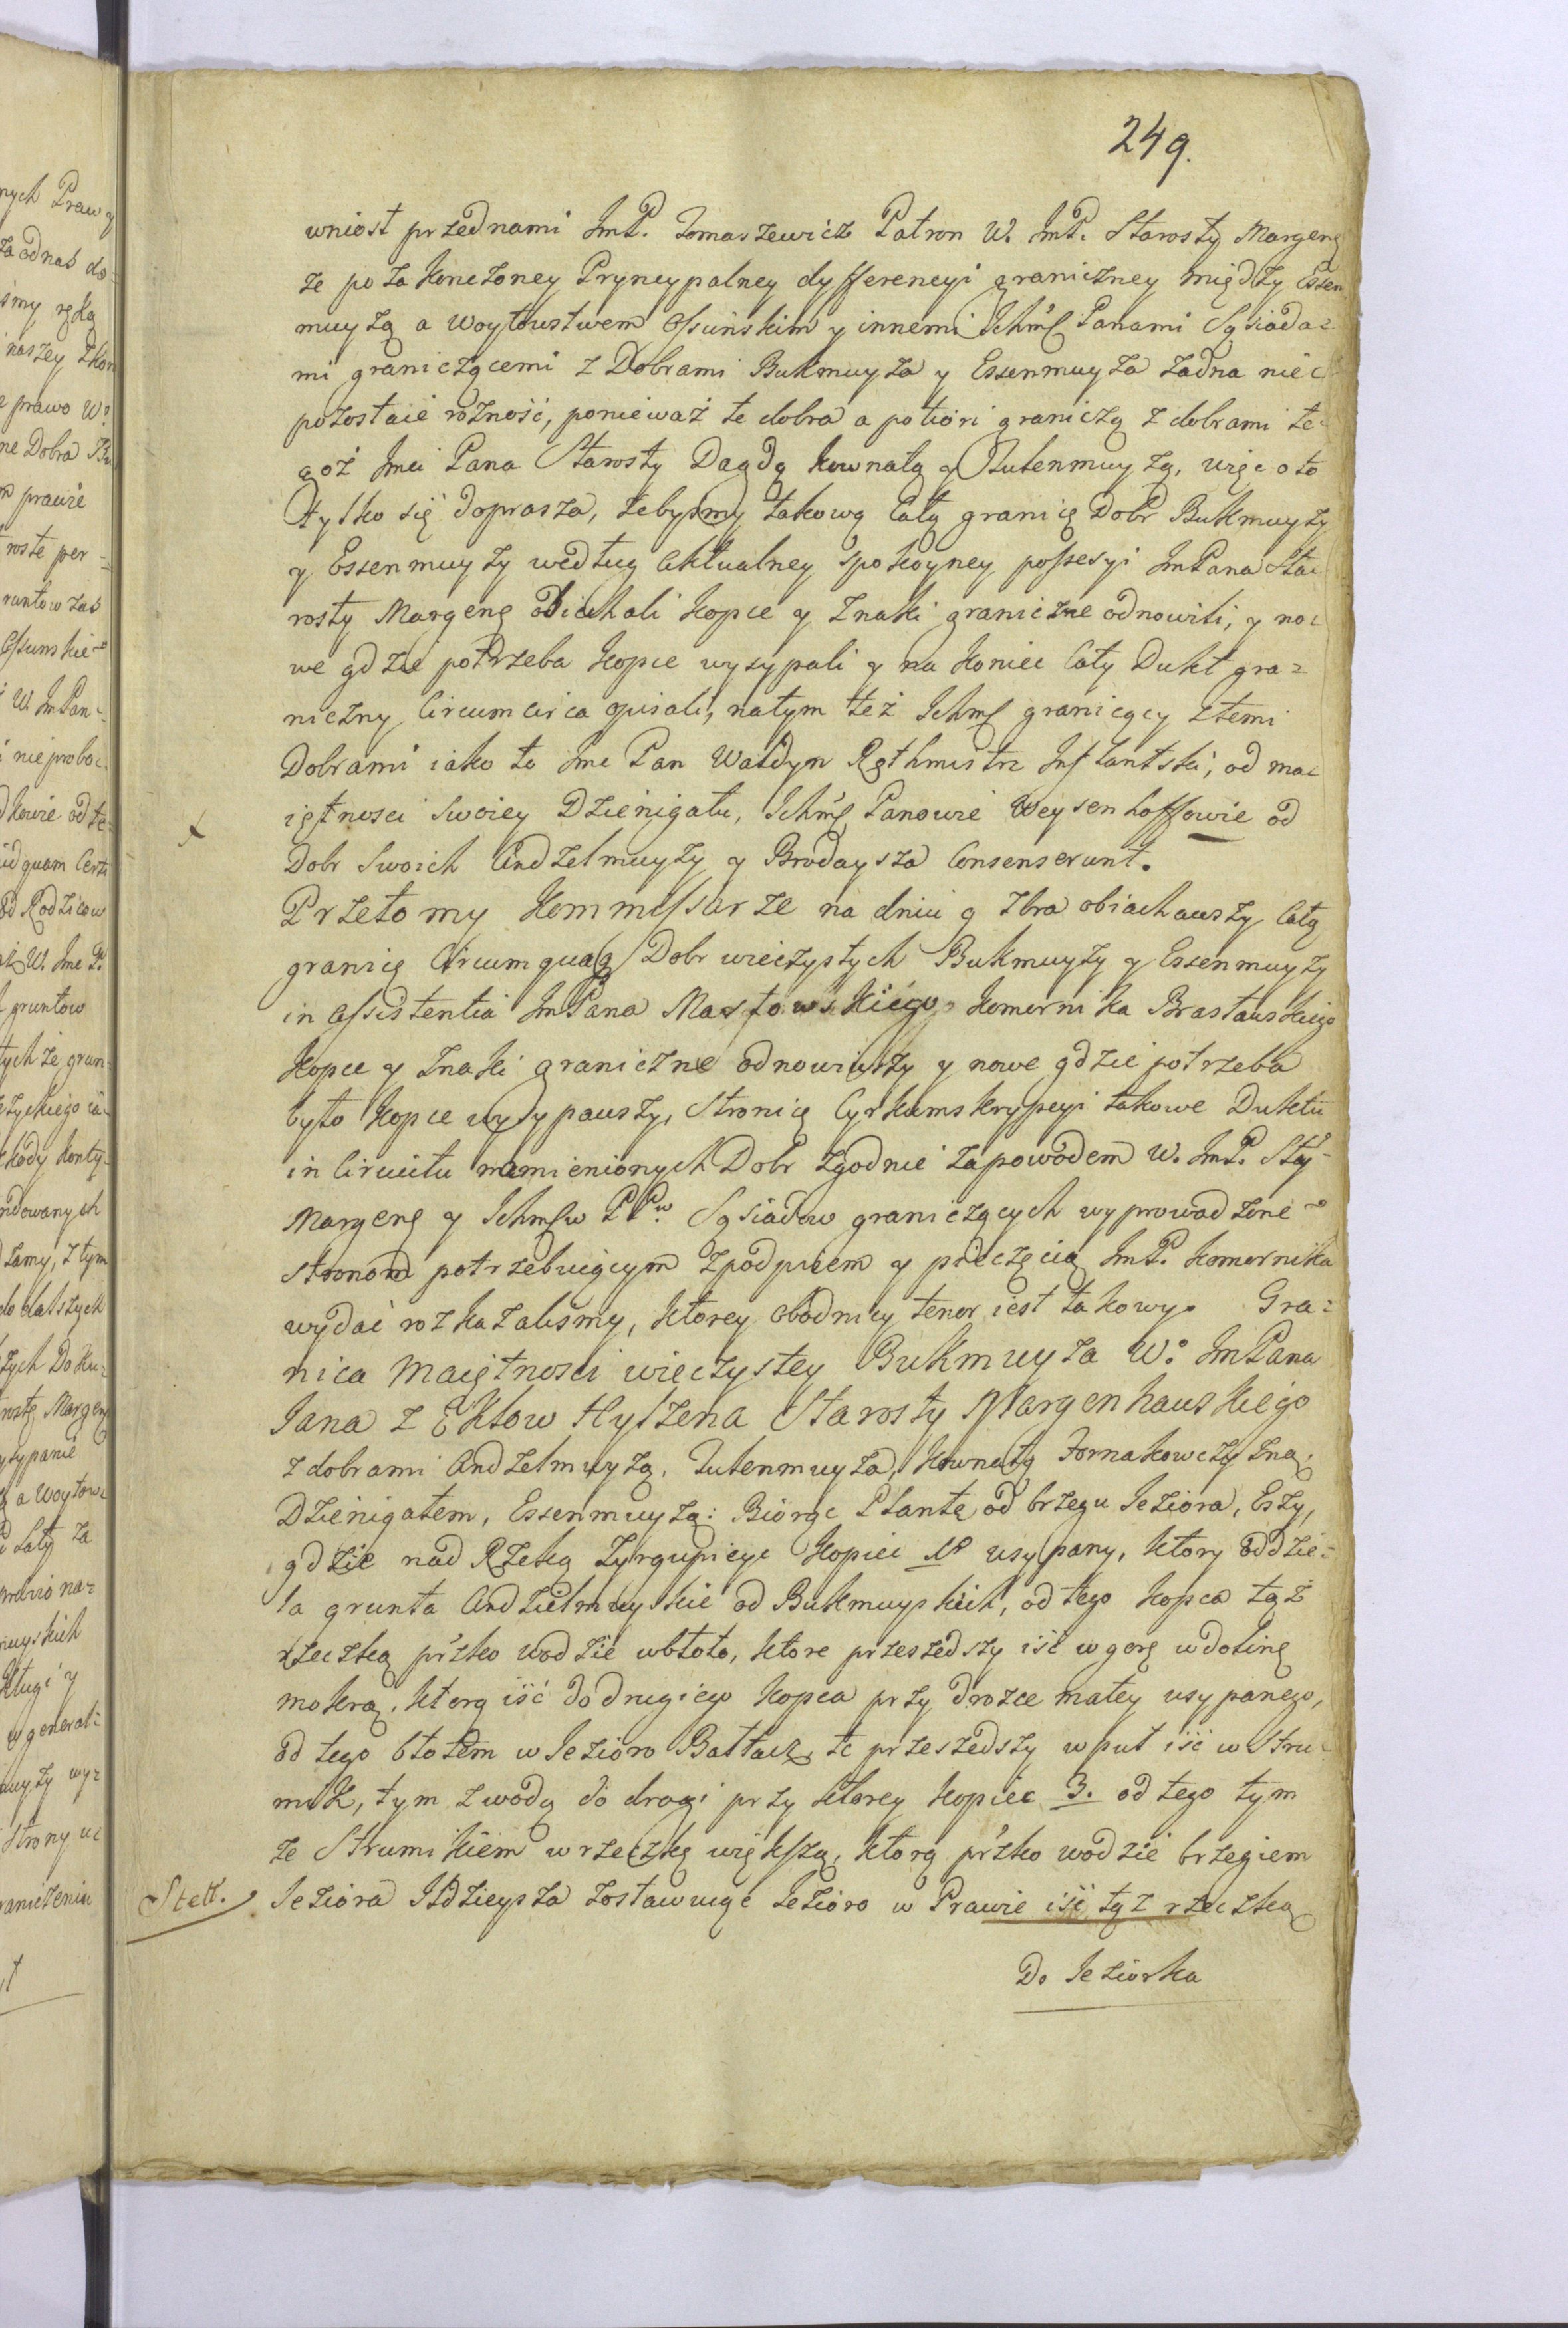 249.
wniosł przednami JmP. Tomaszewicz Patron W. JmP. Starosty Margeng
że po zakonczoney Pryncypalney dyfferencyi graniczney między Essen
muyżą a Woytowstwem Ossuńskim y innemi Ichmść Panami Sąsiada-
mi graniczącemi z Dobrami Bukmuyża y Essenmuyża żadna nie
pozostaie rożność, ponieważ te dobra a potiori graniczą z dobrami te-
goż Jmci Pana Starosty Dagdą Kownatą y Rutenmuyżą, więc o to
tylko się doprasza, żebysmy takową całą granicę Dobr Bukmuyży
y Essenmuyży według aktualney spokoyney possesyi JmPana Sta-
rosty Margeng obiechali kopce y znaki graniczne odnowili, y no-
we gdzie potrzeba kopce wysypali y na koniec cały Dukt gra-
niczny circumcirca opisali, natym też Ichmść granicący ztemi
Dobrami iako to Jmc Pan Wałdyn Rgthmistrz Inflantski, od ma-
iętnosci Swoiey Dzienigału, Ichmść Panowie Weysenhoffowie od
Dobr Swoich Andzelmuyży y Brodaysza Consenserunt.
Przeto my Kommissarze na dniu 9 Zbra obiachawszy całą
granicę Circumquaq Dobr wieczystych Bukmuyży y Essenmuyży
in assistentia JmPana Masłowskiego Komornika Brasławskiego
kopce y znaki graniczne odnowiwszy y nowe gdzie potrzeba
było kopce wysypawszy, Stronię Cyrkumskrypcyi takowe Duktu
in Circuitu namienionych Dobr zgodnie zapowodem W. JmP. Sty
Margeng y Ichmściw PPw. Sąsiadow graniczących wyprowadzone
stronom potrzebuiącym zpodpisem y pieczęcią JmP. Komornika
wydać rozkazalismy, ktorey obodnicy tenor iest takowy. Gra-
nica Maiętnosci wieczystey Bukmuyża Wo JmPana
Jana z Ekłow Hylzena Starosty Margenhauskiego
z dobrami Andzelmuyżą, Rutenmuyża, Kownatą Formakowczyzną,
Dzienigałem, Essenmuyżą: Biorąc Plantę od brzegu Jeziora, Eszy,
gdzie nad Rzeką Zyrgupicye kopiec 1o usypany, ktory oddzie-
la grunta Andzielmuyskie od Bukmuyskich, od tego kopca tąż
rzeczką przko wodzie wbłoto, ktore przeszedszy iść w gorę w dolinę
mokrą, ktorą iść do drugiego kopca przy drożce małey usypanego,
od tego błotem w Jezioro Bałtacz te przeszedszy wput iść w Stru-
mik, tym z wodą do drogi przy ktorey kopiec 3. od tego tym
że Strumikiem w rzeczkę większą, ktorą przko wodzie brzegiem
Stett. Jeziora Ildzieysza zostawuiąc Jezioro w Prawie iść tąż rzeczką
Do Jeziorka